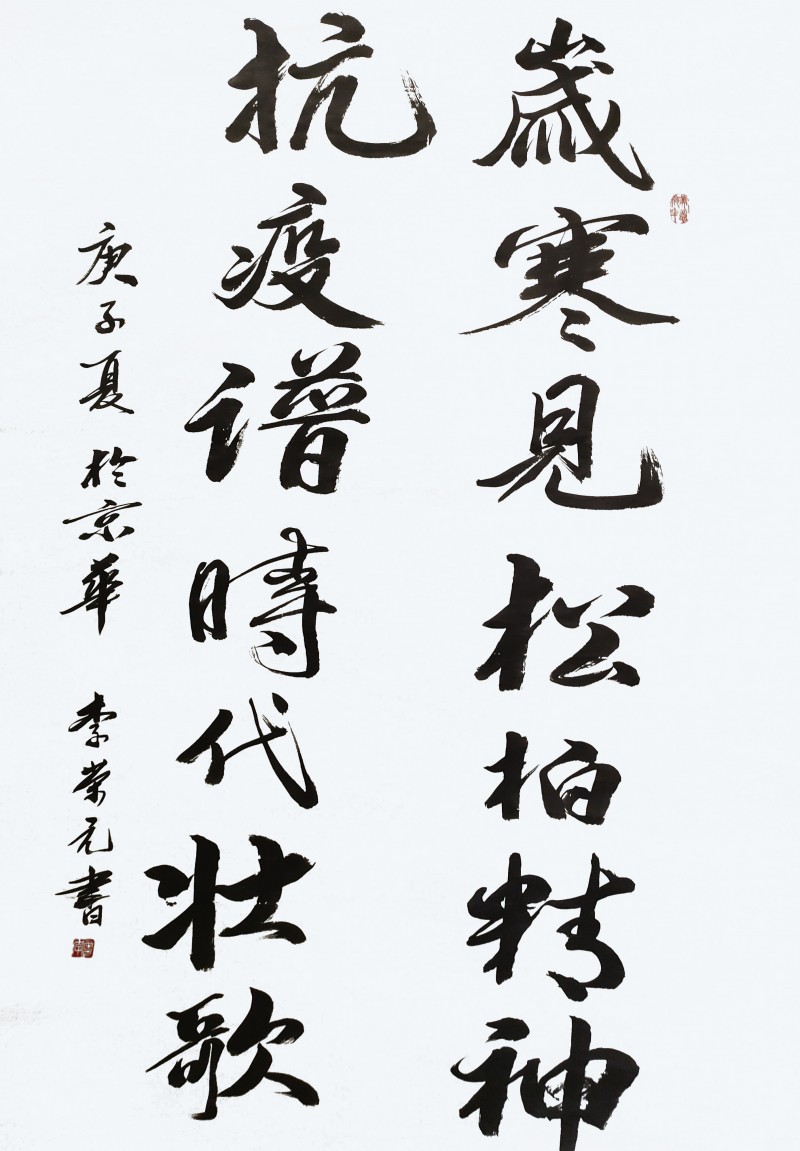 歲寒見松柏精神
抗疫譜時代壯歌
庚子夏於京華 李荣元書